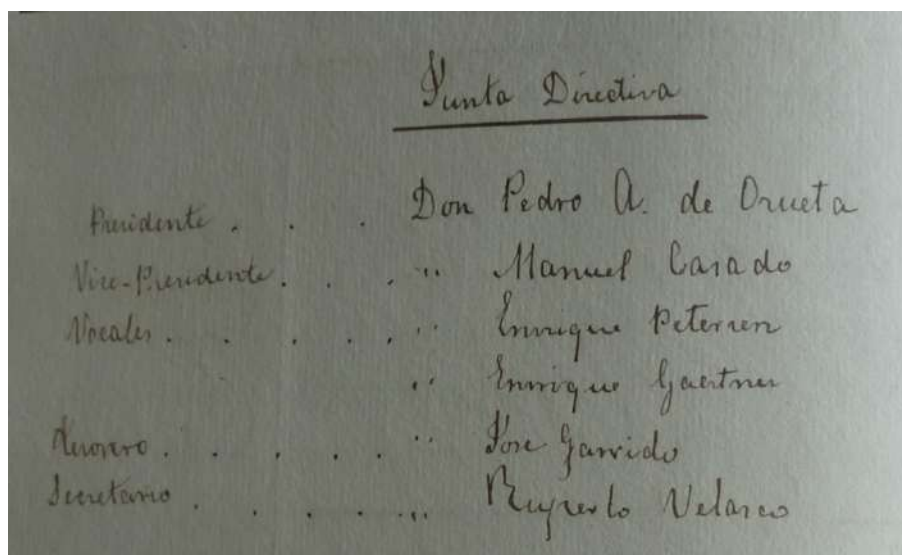 Junta Directiva
Presidente . . . Don Pedro A. de Orueta
Vice-Presidente . . . " Manuel Casado
Vocales . . . . . " Enrique Petersen
" Enrique Gaertner
Tesorero . . . . . " Jose Garrido
Secretario . . . . " Ruperto Velasco